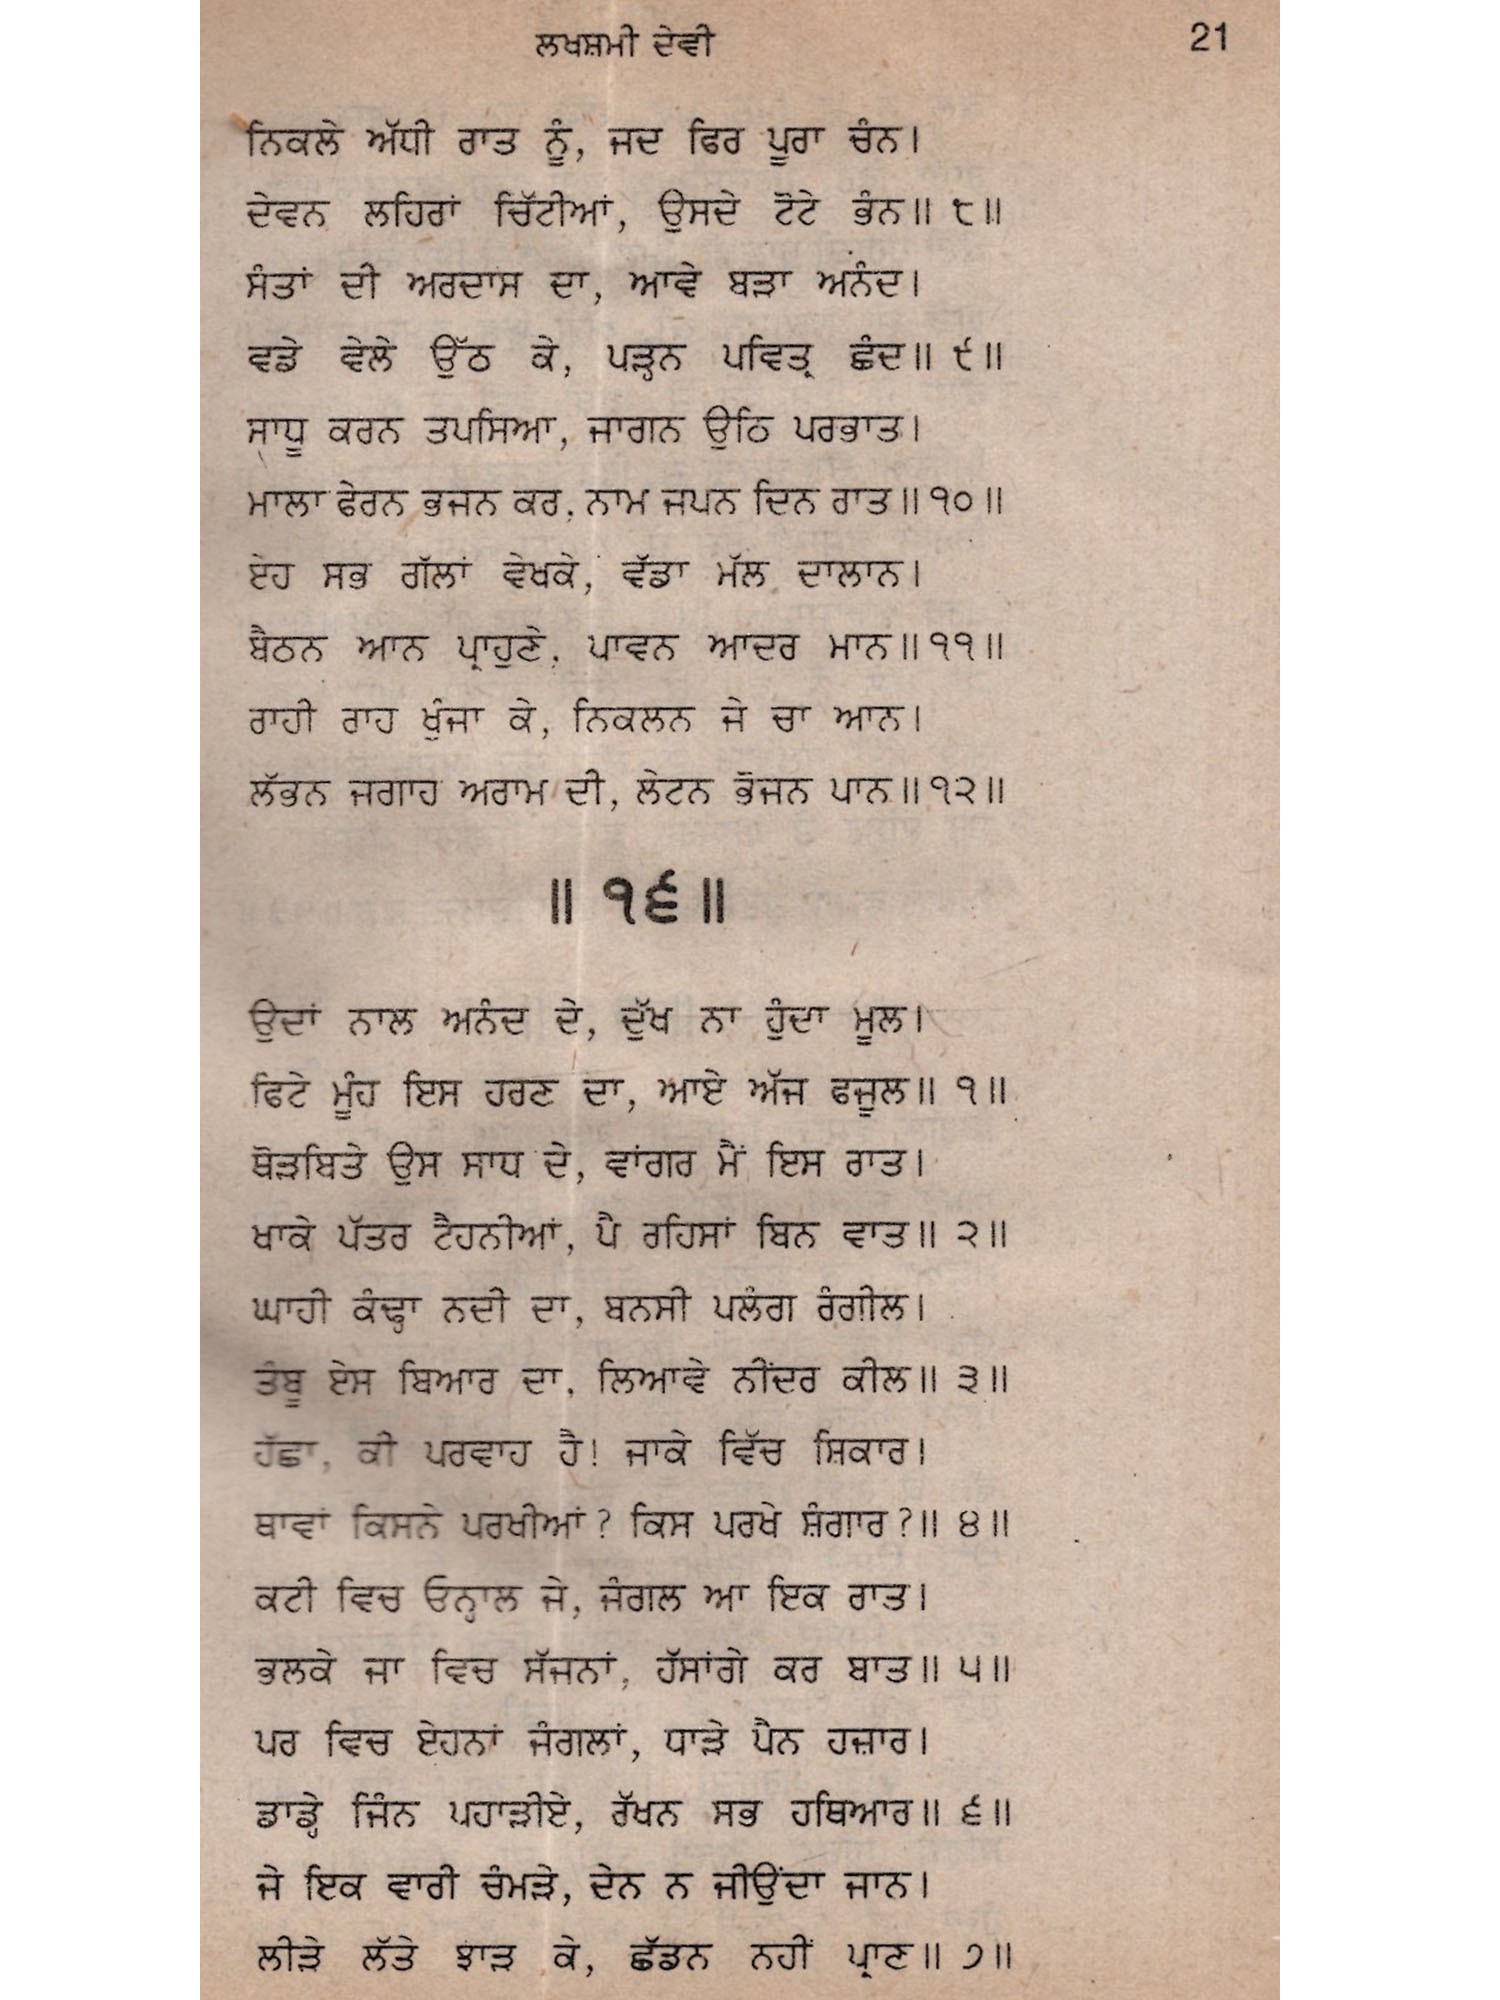 ਲਖਸ਼ਮੀ ਦੇਵੀ 21
ਨਿਕਲੇ ਅੱਧੀ ਰਾਤ ਨੂੰ, ਜਦ ਫਿਰ ਪੂਰਾ ਚੰਨ।
ਦੇਵਨ ਲਹਿਰਾਂ ਚਿੱਟੀਆਂ, ਉਸਦੇ ਟੋਟੇ ਭੰਨ॥ ੮॥
ਸੰਤਾਂ ਦੀ ਅਰਦਾਸ ਦਾ, ਆਵੇ ਬੜਾ ਅਨੰਦ।
ਵਡੇ ਵੇਲੇ ਉੱਠ ਕੇ, ਪੜ੍ਹਨ ਪਵਿਤ੍ਰ ਛੰਦ॥ ੯॥
ਸਾਧੂ ਕਰਨ ਤਪਸਿਆ, ਜਾਗਨ ਉਠਿ ਪਰਭਾਤ।
ਮਾਲਾ ਫੇਰਨ ਭਜਨ ਕਰ, ਨਾਮ ਜਪਨ ਦਿਨ ਰਾਤ॥੧੦॥
ਏਹ ਸਭ ਗੱਲਾਂ ਵੇਖਕੇ, ਵੱਡਾ ਮੱਲ ਦਾਲਾਨ।
ਬੈਠਨ ਆਨ ਪ੍ਰਾਹੁਣੇ, ਪਾਵਨ ਆਦਰ ਮਾਨ॥੧੧॥
ਰਾਹੀ ਰਾਹ ਖੁੰਜਾ ਕੇ, ਨਿਕਲਨ ਜੇ ਚਾ ਆਨ।
ਲੱਭਨ ਜਗਾਹ ਅਰਾਮ ਦੀ, ਲੇਟਨ ਭੋਜਨ ਪਾਨ॥੧੨॥
॥ ੧੬॥
ਉਦਾਂ ਨਾਲ ਅਨੰਦ ਦੇ, ਦੁੱਖ ਨਾ ਹੁੰਦਾ ਮੂਲ।
ਫਿਟੇ ਮੂੰਹ ਇਸ ਹਰਣ ਦਾ, ਆਏ ਅੱਜ ਫਜੂਲ॥ ੧॥
ਥੋੜਬਿਤੇ ਉਸ ਸਾਧ ਦੇ, ਵਾਂਗਰ ਮੈਂ ਇਸ ਰਾਤ।
ਖਾਕੇ ਪੱਤਰ ਟੈਹਨੀਆਂ, ਪੈ ਰਹਿਸਾਂ ਬਿਨ ਵਾਤ॥ ੨॥
ਘਾਹੀ ਕੰਢ੍ਹਾ ਨਦੀ ਦਾ, ਬਨਸੀ ਪਲੰਗ ਰੰਗੀਲ।
ਤੰਬੂ ਏਸ ਬਿਆਰ ਦਾ, ਲਿਆਵੇ ਨੀਂਦਰ ਕੀਲ॥ ੩॥
ਹੱਛਾ, ਕੀ ਪਰਵਾਹ ਹੈ! ਜਾਕੇ ਵਿੱਚ ਸ਼ਿਕਾਰ।
ਥਾਵਾਂ ਕਿਸਨੇ ਪਰਖੀਆਂ? ਕਿਸ ਪਰਖੇ ਸ਼ੰਗਾਰ?॥ ੪॥
ਕਟੀ ਵਿਚ ਓਨ੍ਹਾਲ ਜੇ, ਜੰਗਲ ਆ ਇਕ ਰਾਤ।
ਭਲਕੇ ਜਾ ਵਿਚ ਸੱਜਨਾਂ, ਹੱਸਾਂਗੇ ਕਰ ਬਾਤ॥ ੫॥
ਪਰ ਵਿਚ ਏਹਨਾਂ ਜੰਗਲਾਂ, ਧਾੜੇ ਪੈਨ ਹਜ਼ਾਰ।
ਡਾਢ੍ਹੇ ਜਿੰਨ ਪਹਾੜੀਏ, ਰੱਖਨ ਸਭ ਹਥਿਆਰ॥ ੬॥
ਜੇ ਇਕ ਵਾਰੀ ਚੰਮੜੇ, ਦੇਨ ਨ ਜੀਉਂਦਾ ਜਾਨ।
ਲੀੜੇ ਲੱਤੇ ਝਾੜ ਕੇ, ਛੱਡਨ ਨਹੀਂ ਪ੍ਰਾਣ॥ ੭॥